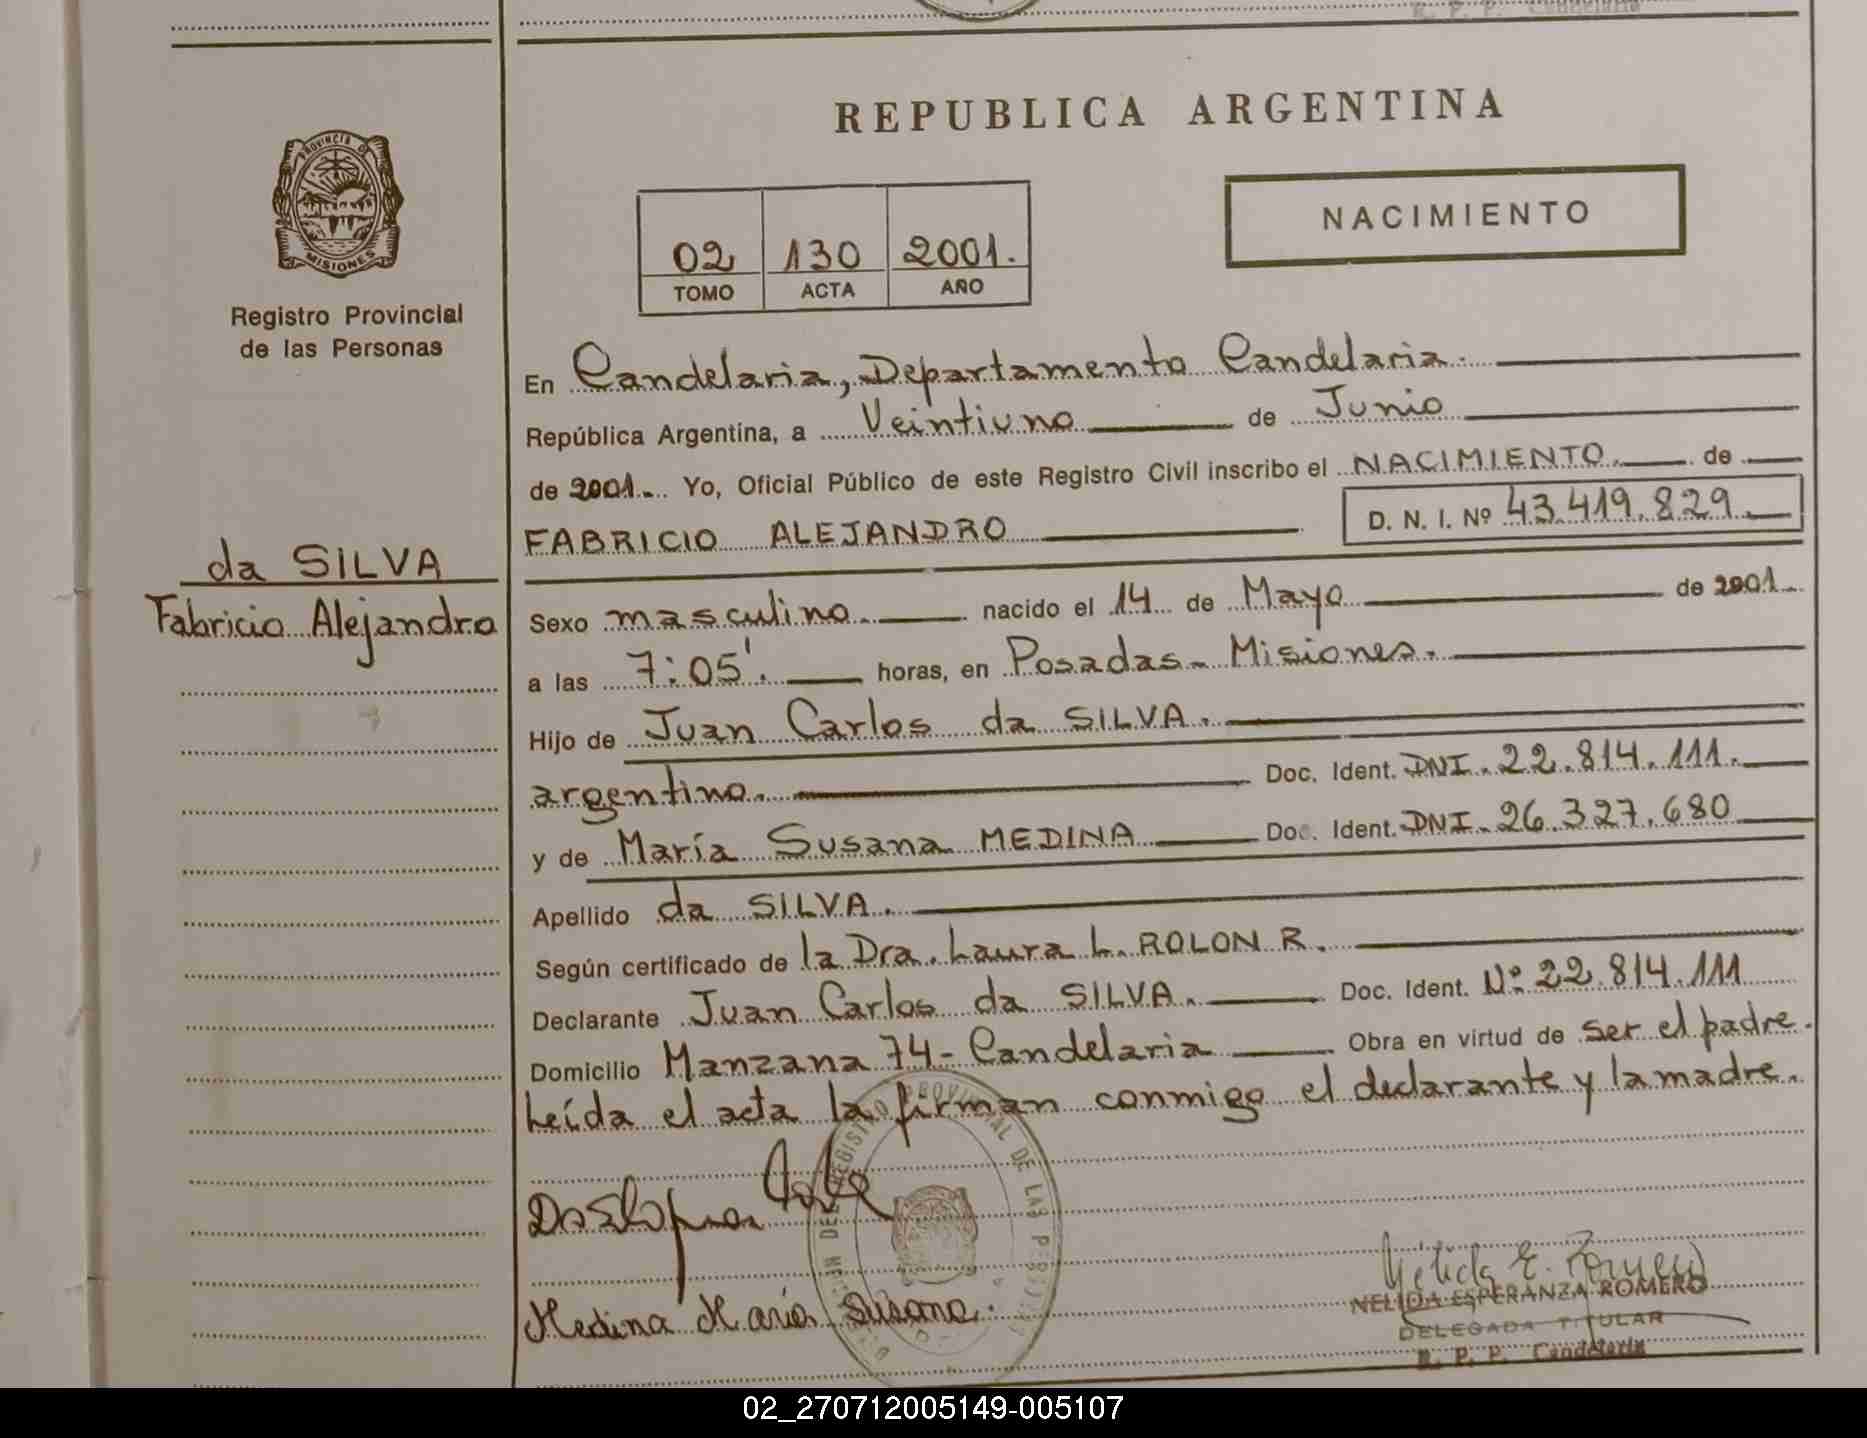 R. P. P. Candelaria
REPUBLICA ARGENTINA
PROVINCIA DE
MISIONES
Registro Provincial
de las Personas
NACIMIENTO
02 130 2001.
TOMO ACTA AÑO
En Candelaria, Departamento Candelaria.
República Argentina, a Veintiuno de Junio
de 2001. Yo, Oficial Público de este Registro Civil inscribo el NACIMIENTO. de
FABRICIO ALEJANDRO D. N. I. Nº 43.419.829
da SILVA
Fabricio Alejandro
Sexo masculino. nacido el 14 de Mayo de 2001.
a las 7:05'. horas, en Posadas - Misiones.
Hijo de Juan Carlos da SILVA.
argentino. Doc. Ident. DNI. 22.814.111.
y de María Susana MEDINA Doc. Ident. DNI. 26.327.680
Apellido da SILVA.
Según certificado de la Dra. Laura L. ROLON R.
Declarante Juan Carlos da SILVA. Doc. Ident. Nº 22.814.111
Domicilio Manzana 74 - Candelaria Obra en virtud de ser el padre.
Leída el acta la firman conmigo el declarante y la madre.
REGISTRO PROVINCIAL DE LAS
Medina María Susana.
NELIDA ESPERANZA ROMERO
DELEGADA TITULAR
R. P. P. Candelaria
02_270712005149-005107